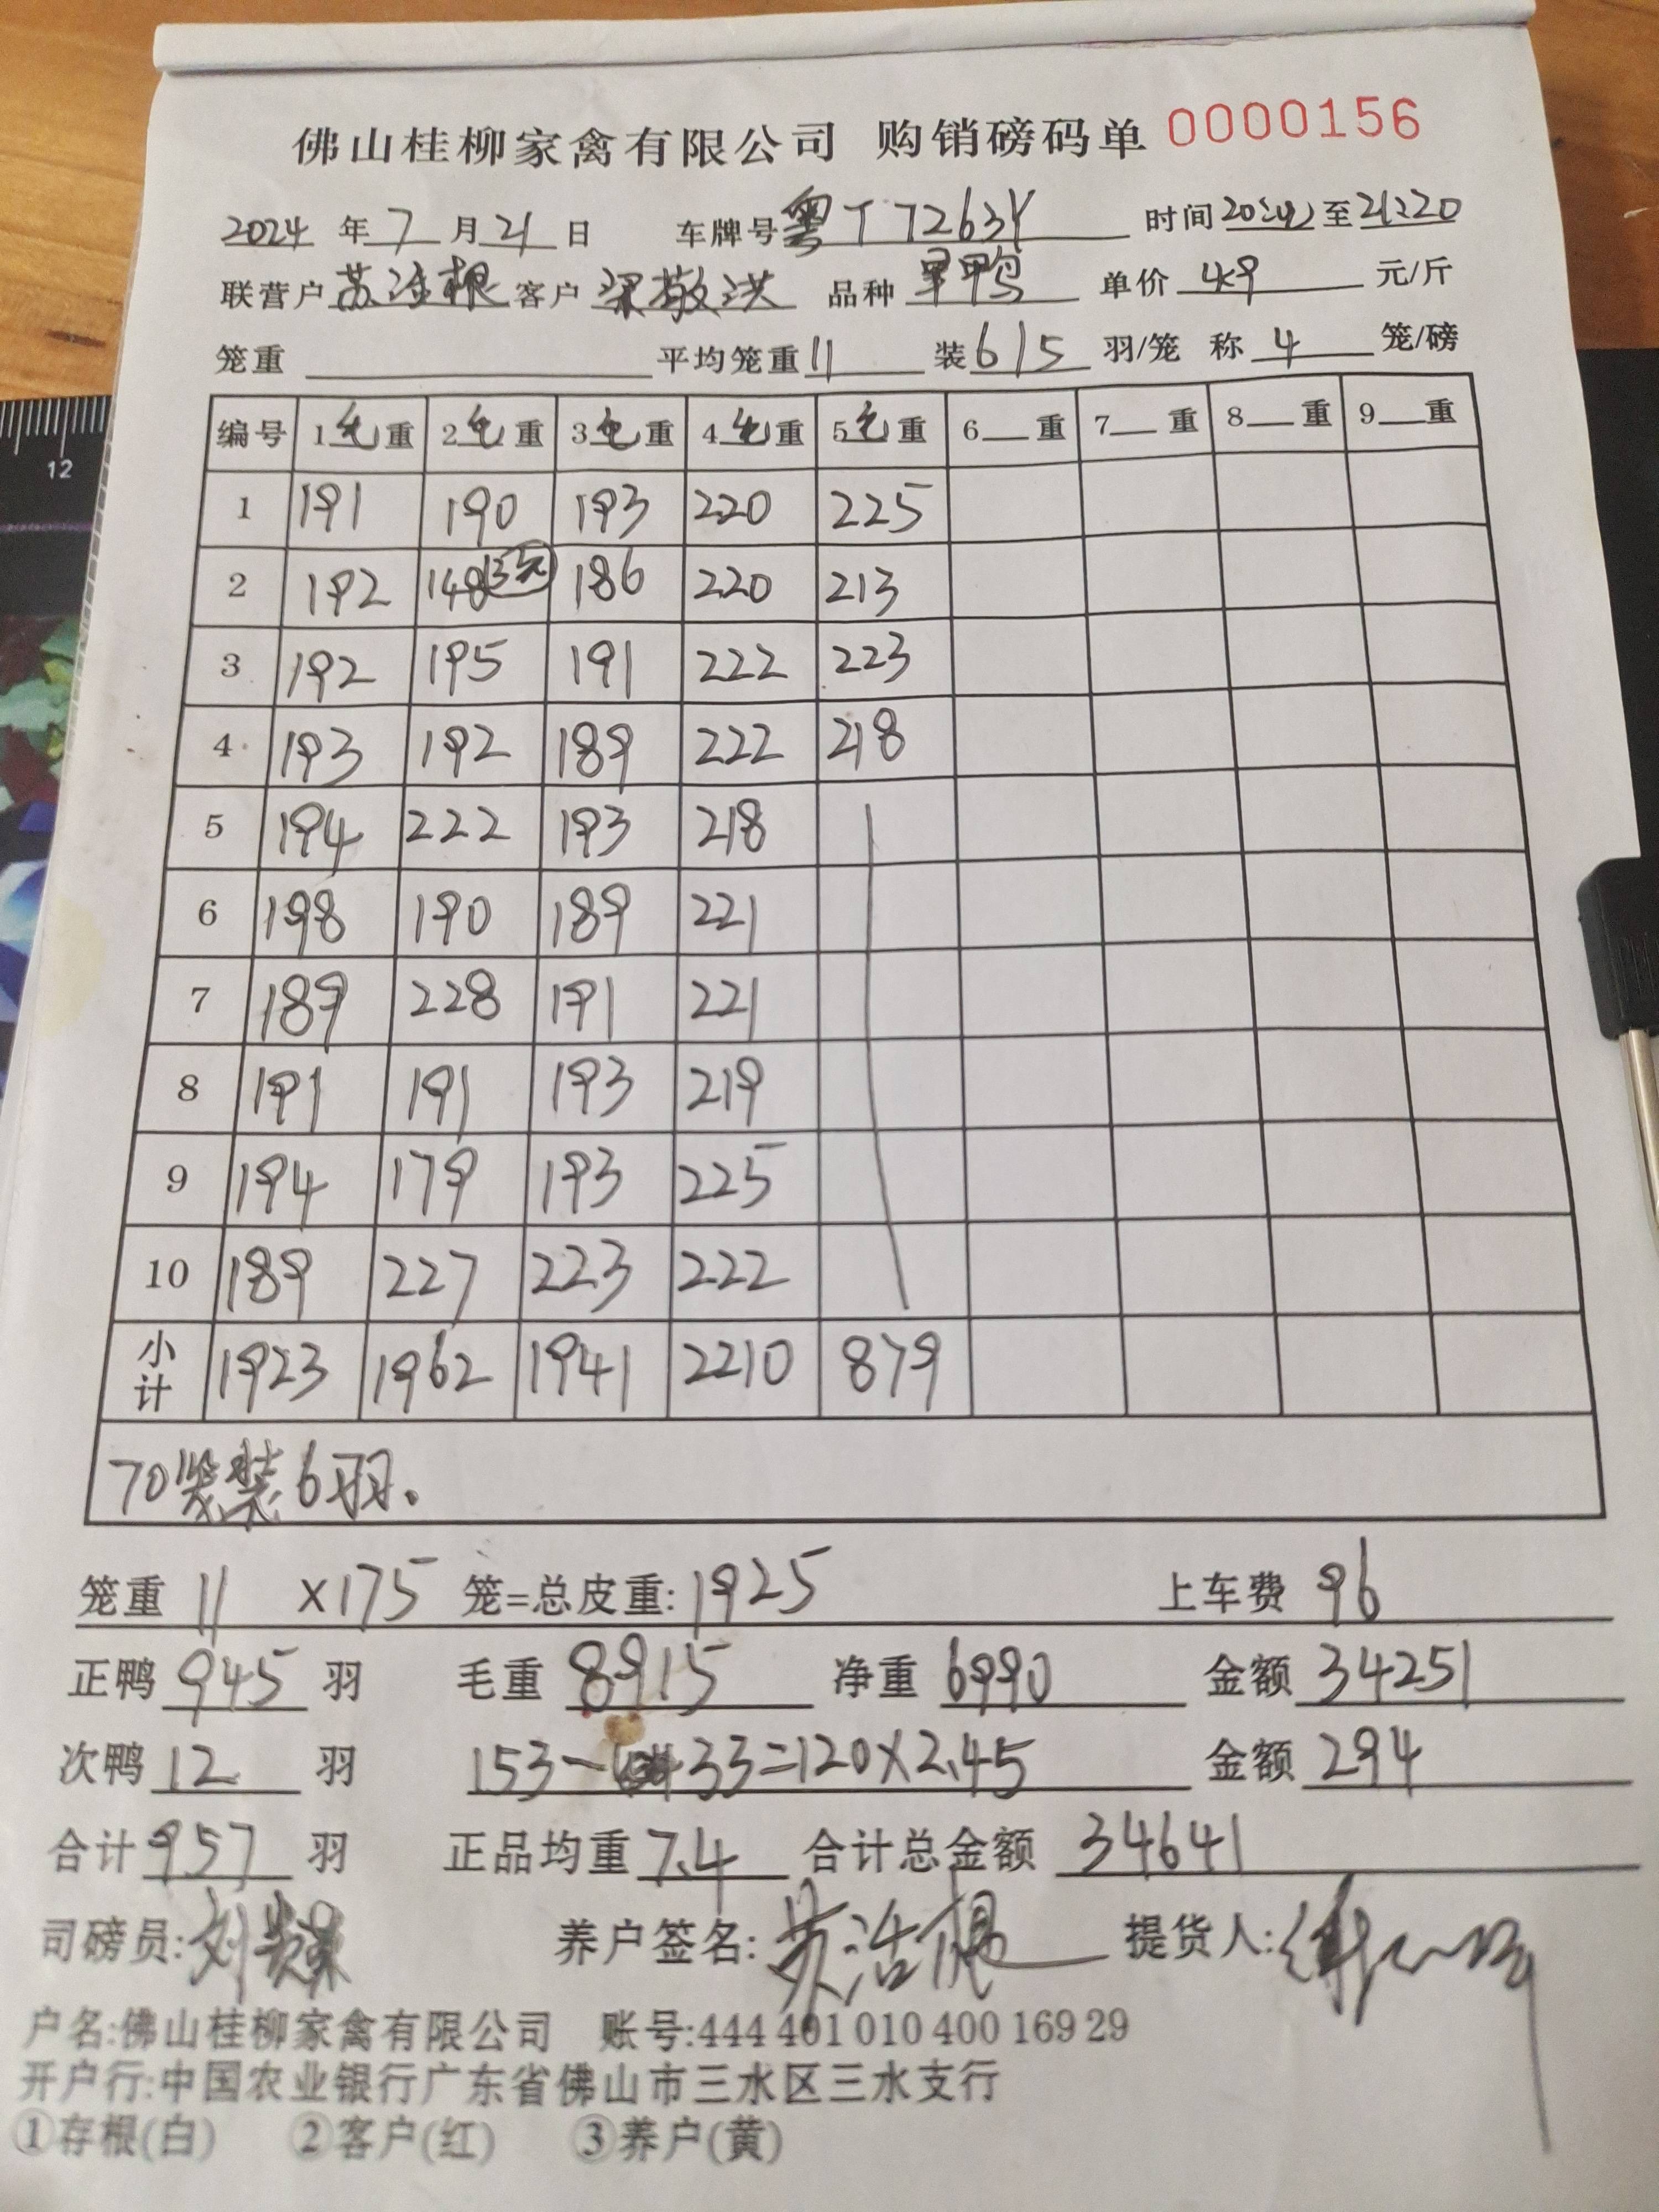 佛山桂柳家禽有限公司 购销磅码单 0000156
2024 年 7 月 21 日 车牌号 粤T7263Y 时间 至 21:20
联营户 苏浩根 客户 梁敬洪 品种 单价 4.9 元/斤
笼重 平均笼重 11 装 6/5 羽/笼 称 4 笼/磅
编号 1毛重 2毛重 3毛重 4毛重 5毛重 6 重 7 重 8 重 9 重
1 191 190 193 220 225
2 192 148 186 220 213
3 192 195 191 222 223
4 193 192 189 222 218
5 194 222 193 218
6 198 190 189 221
7 189 228 191 221
8 191 191 193 219
9 194 179 193 225
10 189 227 223 222
小计 1923 1962 1941 2210 879
70笼装6羽.
笼重 11 ×175 笼=总皮重: 1925 上车费 96
正鸭 945 羽 毛重 8915 净重 6990 金额 34251
次鸭 12 羽 153- 33=120×2.45 金额 294
合计 957 羽 正品均重 7.4 合计总金额 34641
司磅员: 养户签名: 苏浩根 提货人:
户名:佛山桂柳家禽有限公司 账号:444 401 010 400 169 29
开户行:中国农业银行广东省佛山市三水区三水支行
①存根(白) ②客户(红) ③养户(黄)
12